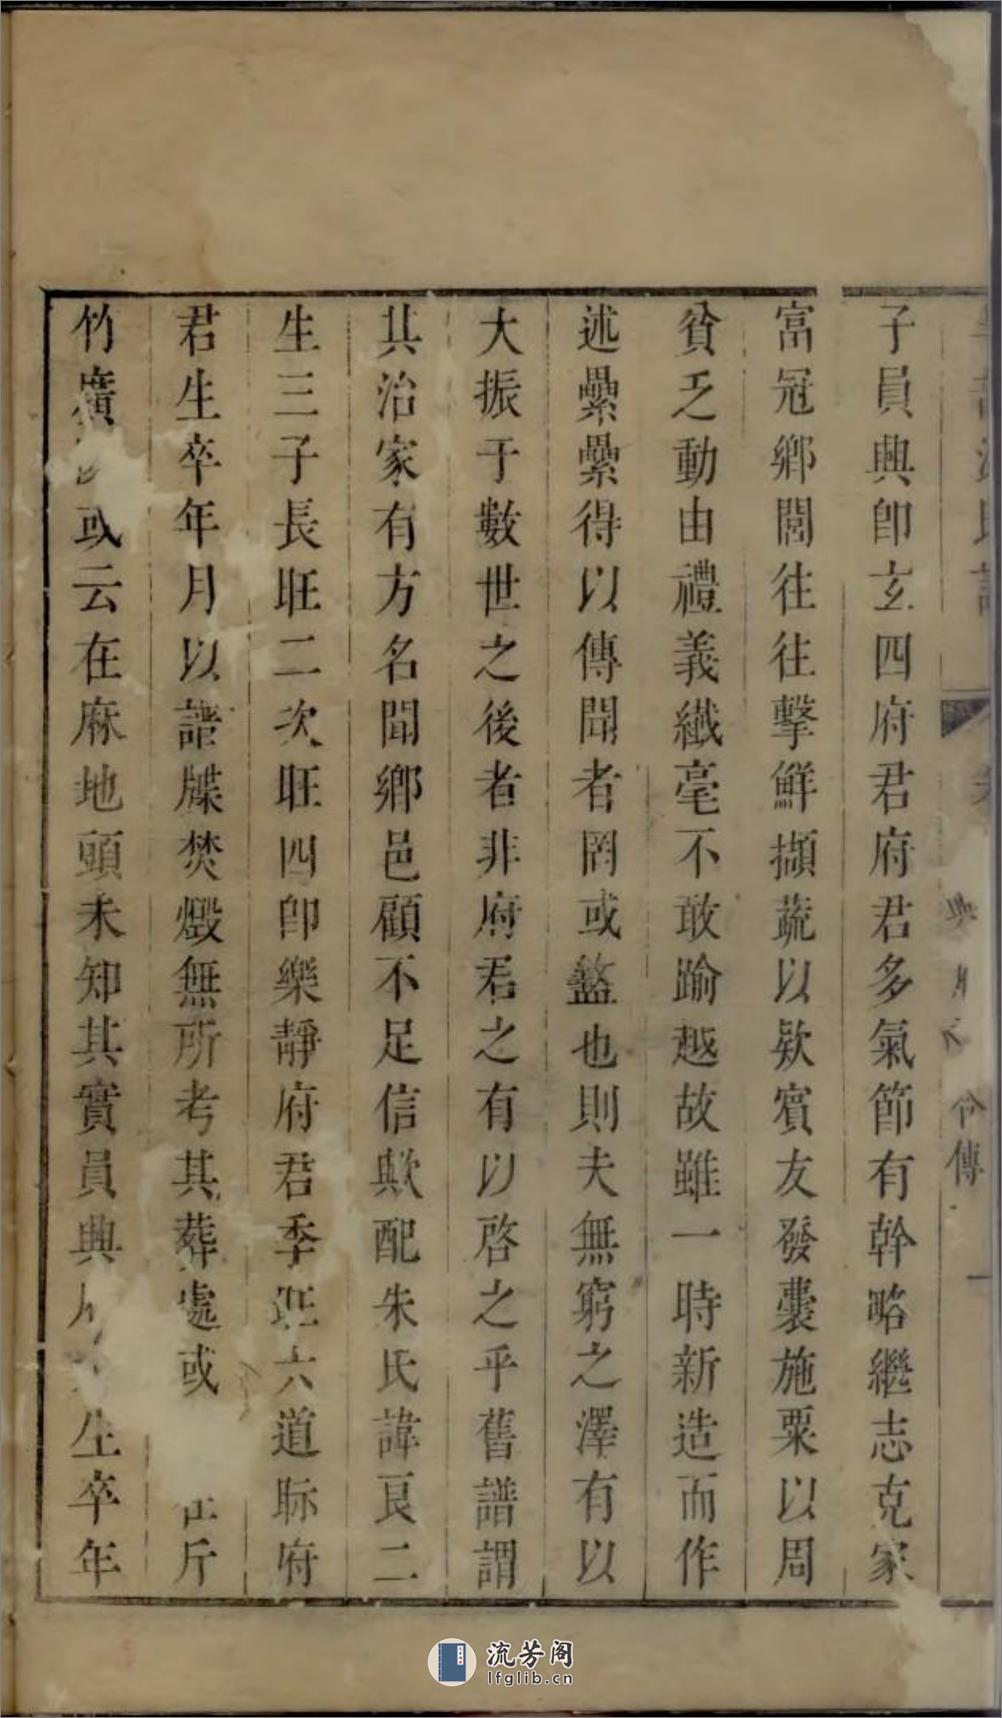 子員典即玄四府君府君多氣節有幹略繼志克家
富冠鄉閭往往擊鮮擷蔬以欵賓友發囊施粟以周
貧乏動由禮義纎毫不敢踰越故雖一時新造而作
述纍纍得以傳聞者罔或盭也則夫無窮之澤有以
大振于數世之後者非府君之有以啓之乎舊譜謂
其治家有方名聞鄉邑顧不足信歟配朱氏諱良二
生三子長旺二次旺四即樂靜府君季旺六道眎府
君生卒年月以譜牒焚燬無所考其葬處或在斤
竹廣或云在麻地頭未知其實員典生卒年
傳
一
流芳阁
lfglib.cn